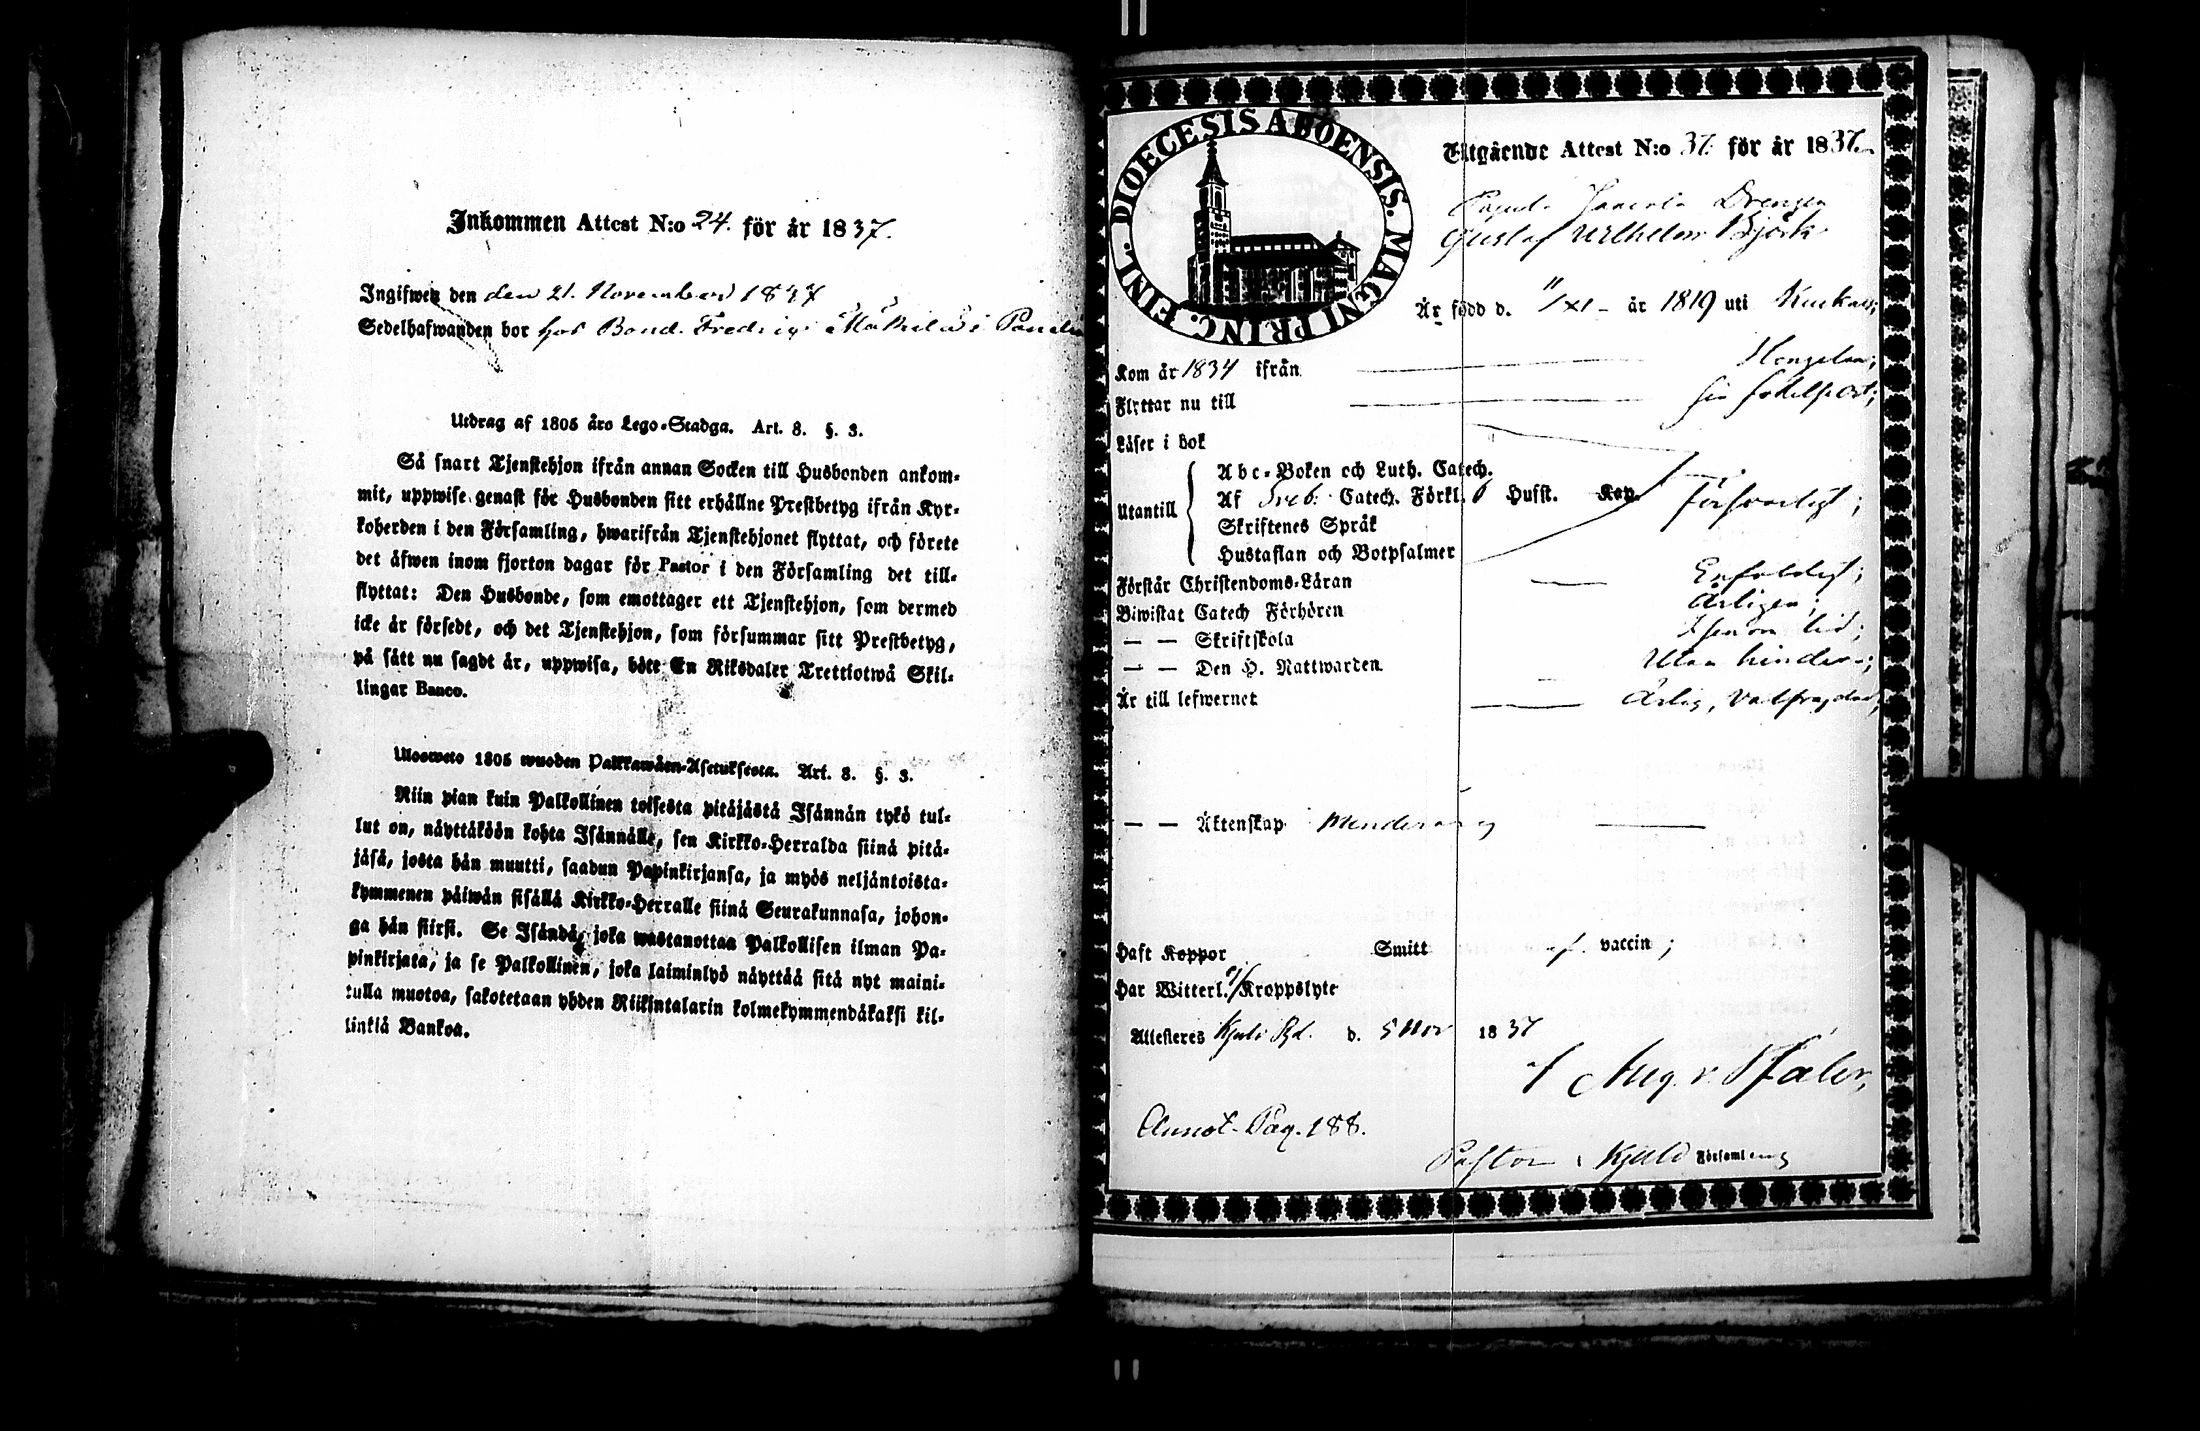 Inkommen Attest N:o 24. för år 1837.
Ingifwen den den 21. November 1837
Sedelhafwanden bor hos Bond. Fredrig Mäkilä i
Utdrag af 1805 års Lego-Stadga. Art. 8. §. 3.
Så snart Tjenstehjon ifrån annan Socken till Husbonden ankom-
mit, uppwise genast för Husbonden sitt erhållne Prestbetyg ifrån Kyr-
koherden i den Församling, hwarifrån Tjenstehjonet flyttat, och förete
det äfwen inom fjorton dagar för Pastor i den Församling det till-
flyttat: Den Husbonde, som emottager ett Tjenstehjon, som dermed
icke är försedt, och det Tjenstehjon, som försummar sitt Prestbetyg,
på sätt nu sagdt är, uppwisa, böte En Riksdaler Trettiotwå Skil-
lingar Banco.
Ulosweto 1805 wuoden Palkkawäen-Asetuksesta. Art. 8. §. 3.
Niin pian kuin Palkollinen toisesta pitäjästä Isännän tykö tul-
lut on, näyttäköön kohta Isännälle, sen Kirkko-Herralda siinä pitä-
jäsä, josta hän muutti, saadun Papinkirjansa, ja myös neljäntoista-
kymmenen päiwän sisällä Kirkko-Herralle siinä Seurakunnasa, johon-
ga hän siirsi. Se Isändä, joka wastanottaa Palkollisen ilman Pa-
pinkirjata, ja se Palkollinen, joka laiminlyö näyttää sitä nyt maini-
tulla muotoa, sakotetaan yhden Riikintalarin kolmekymmendäkaksi kil-
linkiä Bankoa.
DIOECESIS ABOENSIS. MAGNI PRINC. FINL.
Utgående Attest N:o 37. för år 1837.
Drengen
Gustaf Wilhelm Björk
Är född d. 11/XI – år 1819 uti
Kom år 1834 ifrån
Flyttar nu till
Läser i bok
Abc-Boken och Luth. Catech.
Utantill Af Sveb. Catech. Förkl. 6 Husst. Kap. försvarligt;
Skriftenes Språk
Hustaflan och Botpsalmer
Förstår Christendoms-Läran Enfaldigt;
Biwistat Catech Förhören årligen;
— — Skriftskola
— — Den H. Nattwarden Utan hinder;
Är till lefwernet Ärlig, välfrejdad,
— — Äktenskap
Haft Koppor Smitt af vaccin;
Har Witterl. Kroppslyte
Attesteres Kjulo d. 5 Nov 1837
Annot. Pag. 188.
Pastor i Kjulo Församling